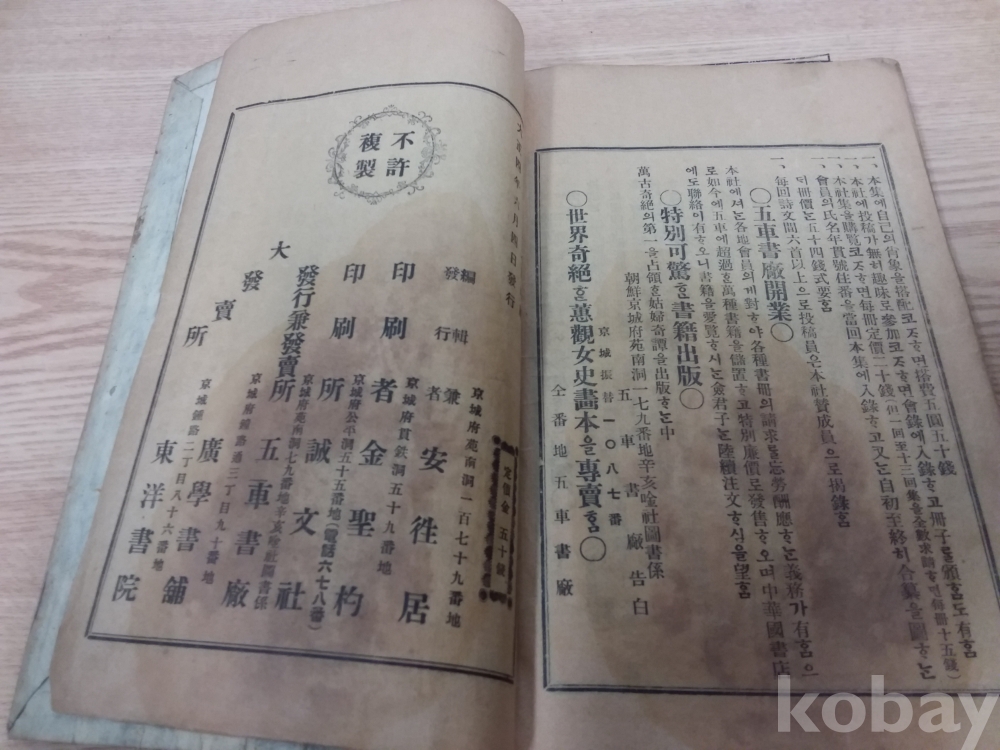 一、本集에自己의肖像을搭配코ᄌᆞᄒᆞ면搭費五圓五十錢
本社에投稿가無히趣味로參加코ᄌᆞᄒᆞ면會錄에入錄ᄒᆞ고冊子를頒흠도有흠
一、本社集을購覽코ᄌᆞᄒᆞ면每冊定價二十錢
會員의氏名年貫號住番을當回本集에入錄ᄒᆞ고又는自初至終히合纂을圖ᄒᆞ는
더冊價는五十四錢式要흠
一、每回詩文間六首以上으로投稿員은本社贊成員으로揭錄흠
○五車書廠開業○
本社에셔는各地會員의게對ᄒᆞ야各種書冊의請求를無勞酬應ᄒᆞ는義務가有흠으
로如今에五車에超過ᄒᆞᆯ萬種書籍을儲置ᄒᆞ고特別廉價로發售ᄒᆞ오며中華國書店
에도聯絡이有ᄒᆞ오니書籍을愛覽ᄒᆞ시는僉君子는陸續注文ᄒᆞ심을望흠
○特別可驚ᄒᆞᆯ書籍出版○
萬古奇絶의第一을占領ᄒᆞᆯ姑婦奇譚을出版ᄒᆞ는中
朝鮮京城府苑南洞一七九番地辛亥唫社圖書係
五車書廠告白
京城振替一〇八七番
○世界奇絶ᄒᆞᆫ蕙觀女史畫本을專賣흠○
仝番地五車書廠
月四日發行
不許
複製
定價金五十錢
京城府苑南洞一百七十九番地
編輯兼
發行者 安往居
京城府貫鉄洞五十九番地
印刷者 金聖杓
京城府公平洞五十五番地(電話六七八番)
印刷所 誠文社
京城府苑南洞七九番地辛亥唫社圖書係
發行兼發賣所 五車書廠
大發賣所
京城府鍾路通三丁目九十番地
廣學書舖
京城鍾路二丁目八十六番地
東洋書院
kobay